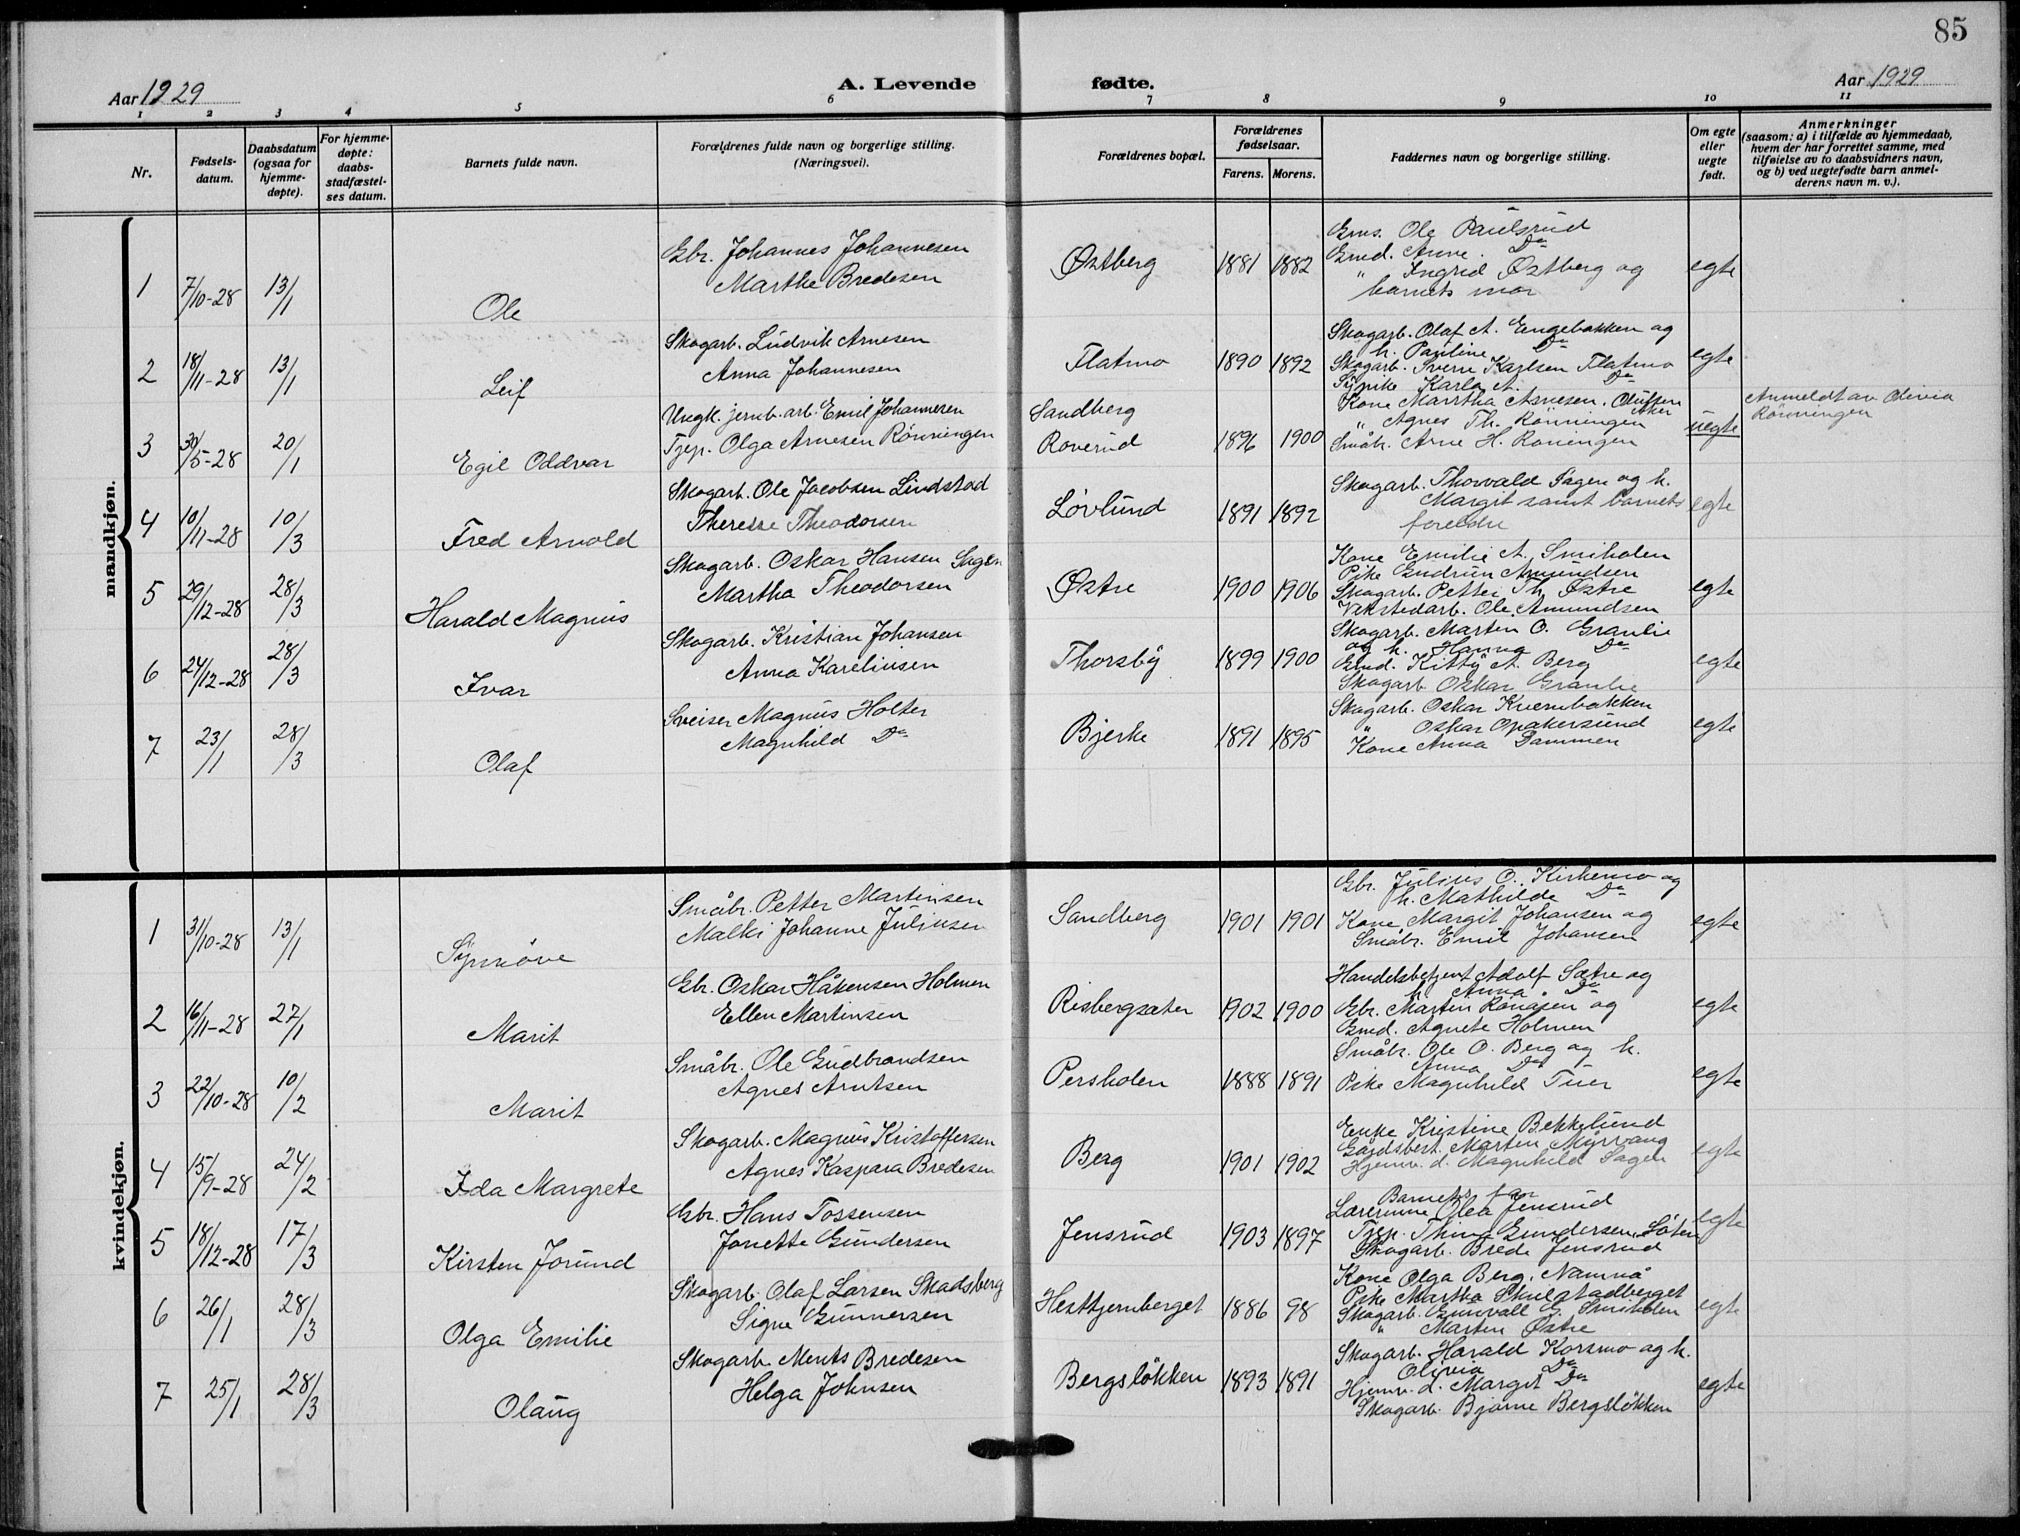 85
Aar 1929
A. Levende fødte.
Aar 1929
1 2 3 4 5 6 7 8 9 10 11
Nr.
Fødsels-
datum.
Daabsdatum
(ogsaa for
hjemme-
døpte).
For hjemme-
døpte:
daabs-
stadfæstel-
ses datum.
Barnets fulde navn.
Forældrenes fulde navn og borgerlige stilling.
(Næringsvei).
Forældrenes bopæl.
Forældrenes
fødselsaar.
Farens. Morens.
Faddernes navn og borgerlige stilling.
Om egte
eller
uegte
født.
Anmerkninger
(saasom: a) i tilfælde av hjemmedaab,
hvem der har forrettet samme, med
tilføielse av to daabsvidners navn,
og b) ved uegtefødte barn anmel-
derens navn m. v.).
mandkjøn.
1 7/10-28 13/1 Ole
Gbr. Johannes Johannesen
Marthe Bredesen
Østberg 1881 1882
Gms. Ole Paulsrud
Gmd. Anne Do
" Ingrid Østberg og
barnets mor
egte
2 18/11-28 13/1 Leif
Skogarb. Ludvik Arnesen
Anna Johannesen
Flatmo 1890 1892
Skogarb. Olaf A. Engebakken og
h. Pauline Do
Skogarb. Sverre Karlsen Flatmo
Sypike Karla A. Do
egte
3 30/5-28 20/1 Egil Oddvar
Ungk. jernb. arb. Emil Johannesen
Tjep. Olga Arnesen Rönningen
Sandberg
Roverud 1896 1900
Kone Marrtha Arnesen, Oluffsen
" Agnes Th. Rønningen
Småbr. Arne H. Roningen
uegte
Anmeldt av Olivia
Rönningen
4 10/11-28 10/3 Fred Arnold
Skogarb. Ole Jacobsen Lindstad
Therese Theodorsen
Løvlund 1891 1892
Skogarb. Thorvald Sagen og h.
Margit samt barnets
foreldre
egte
5 29/12-28 28/3 Harald Magnus
Skogarb. Oskar Hansen Sagen
Martha Theodorsen
Østre 1900 1906
Kone Emilie A. Smiholen
Pike Gudrun Amundsen
Skogarb. Petter Th. Østre
Vakstedarb. Ole Amundsen
egte
6 24/12-28 28/3 Ivar
Skogarb. Kristian Johansen
Anna Kareliusen
Thorsby 1899 1900
Skogarb. Marten O. Granlie
og h. Hanna Do
Gmd. Kitty A. Berg
Skogarb. Oskar Granlie
egte
7 23/1 28/3 Olaf
Sveiser Magnus Holter
Magnhild Do
Bjerke 1891 1895
Skogarb. Oskar Kvernbakken
" Oskar Opakersund
Kone Anna Dammen
egte
kvindekjøn.
1 31/10-28 13/1 Synnöve
Småbr. Petter Martinsen
Malki Johanne Juliusen
Sandberg 1901 1901
Gbr. Julius O. Kirkemo og
h. Mathilde Do
Kone Margit Johansen og
Småbr. Emil Johansen
egte
2 16/11-28 27/1 Marit
Gbr. Oskar Håkensen Holmen
Ellen Martinsen
Risbergsæter 1902 1900
Handelsbetjent Adolf Sætre og
h. Anna Do
Gbr. Martin Rönåsen og
Gmd. Agnete Holmen
egte
3 22/10-28 10/2 Marit
Småbr. Ole Gudbrandsen
Agnes Arntsen
Persholen 1888 1891
Småbr. Ole O. Berg og h.
Anna Do
Pike Magnhild Tuer
egte
4 15/9-28 24/2 Ida Margrete
Skogarb. Magnus Kristoffersen
Agnes Kaspara Bredesen
Berg 1901 1902
Enke Kristine Bekkelund
Gårdsbest. Marten Myrvang
Hjemv. d. Magnhild Sagen
Barnets far
egte
5 18/12-28 17/3 Kirsten Jorund
Gbr. Hans Tossensen
Jonette Gundersen
Jensrud 1903 1897
Lærerinne Olea Jensrud
Tjep. Thina Gundersen, Løten
Skogarb. Brede Jensrud
egte
6 26/1 28/3 Olga Emilie
Skogarb. Olaf Larsen Skadsberg
Signe Gunnersen
Hesttjernberget 1886 98
Kone Olga Berg, Namnå
Pike Martha Skulstadberget
Skogarb. Gunvall G. Smiholen
" Marten Østre
egte
7 25/1 28/3 Olaug
Skogarb. Ments Bredesen
Helga Johnsen
Bergsløkken 1893 1891
Skogarb. Harald Korsmo og h.
Olivia Do
Hjemv. d. Margit Do
Skogarb. Bjarne Bergsløkken
egte